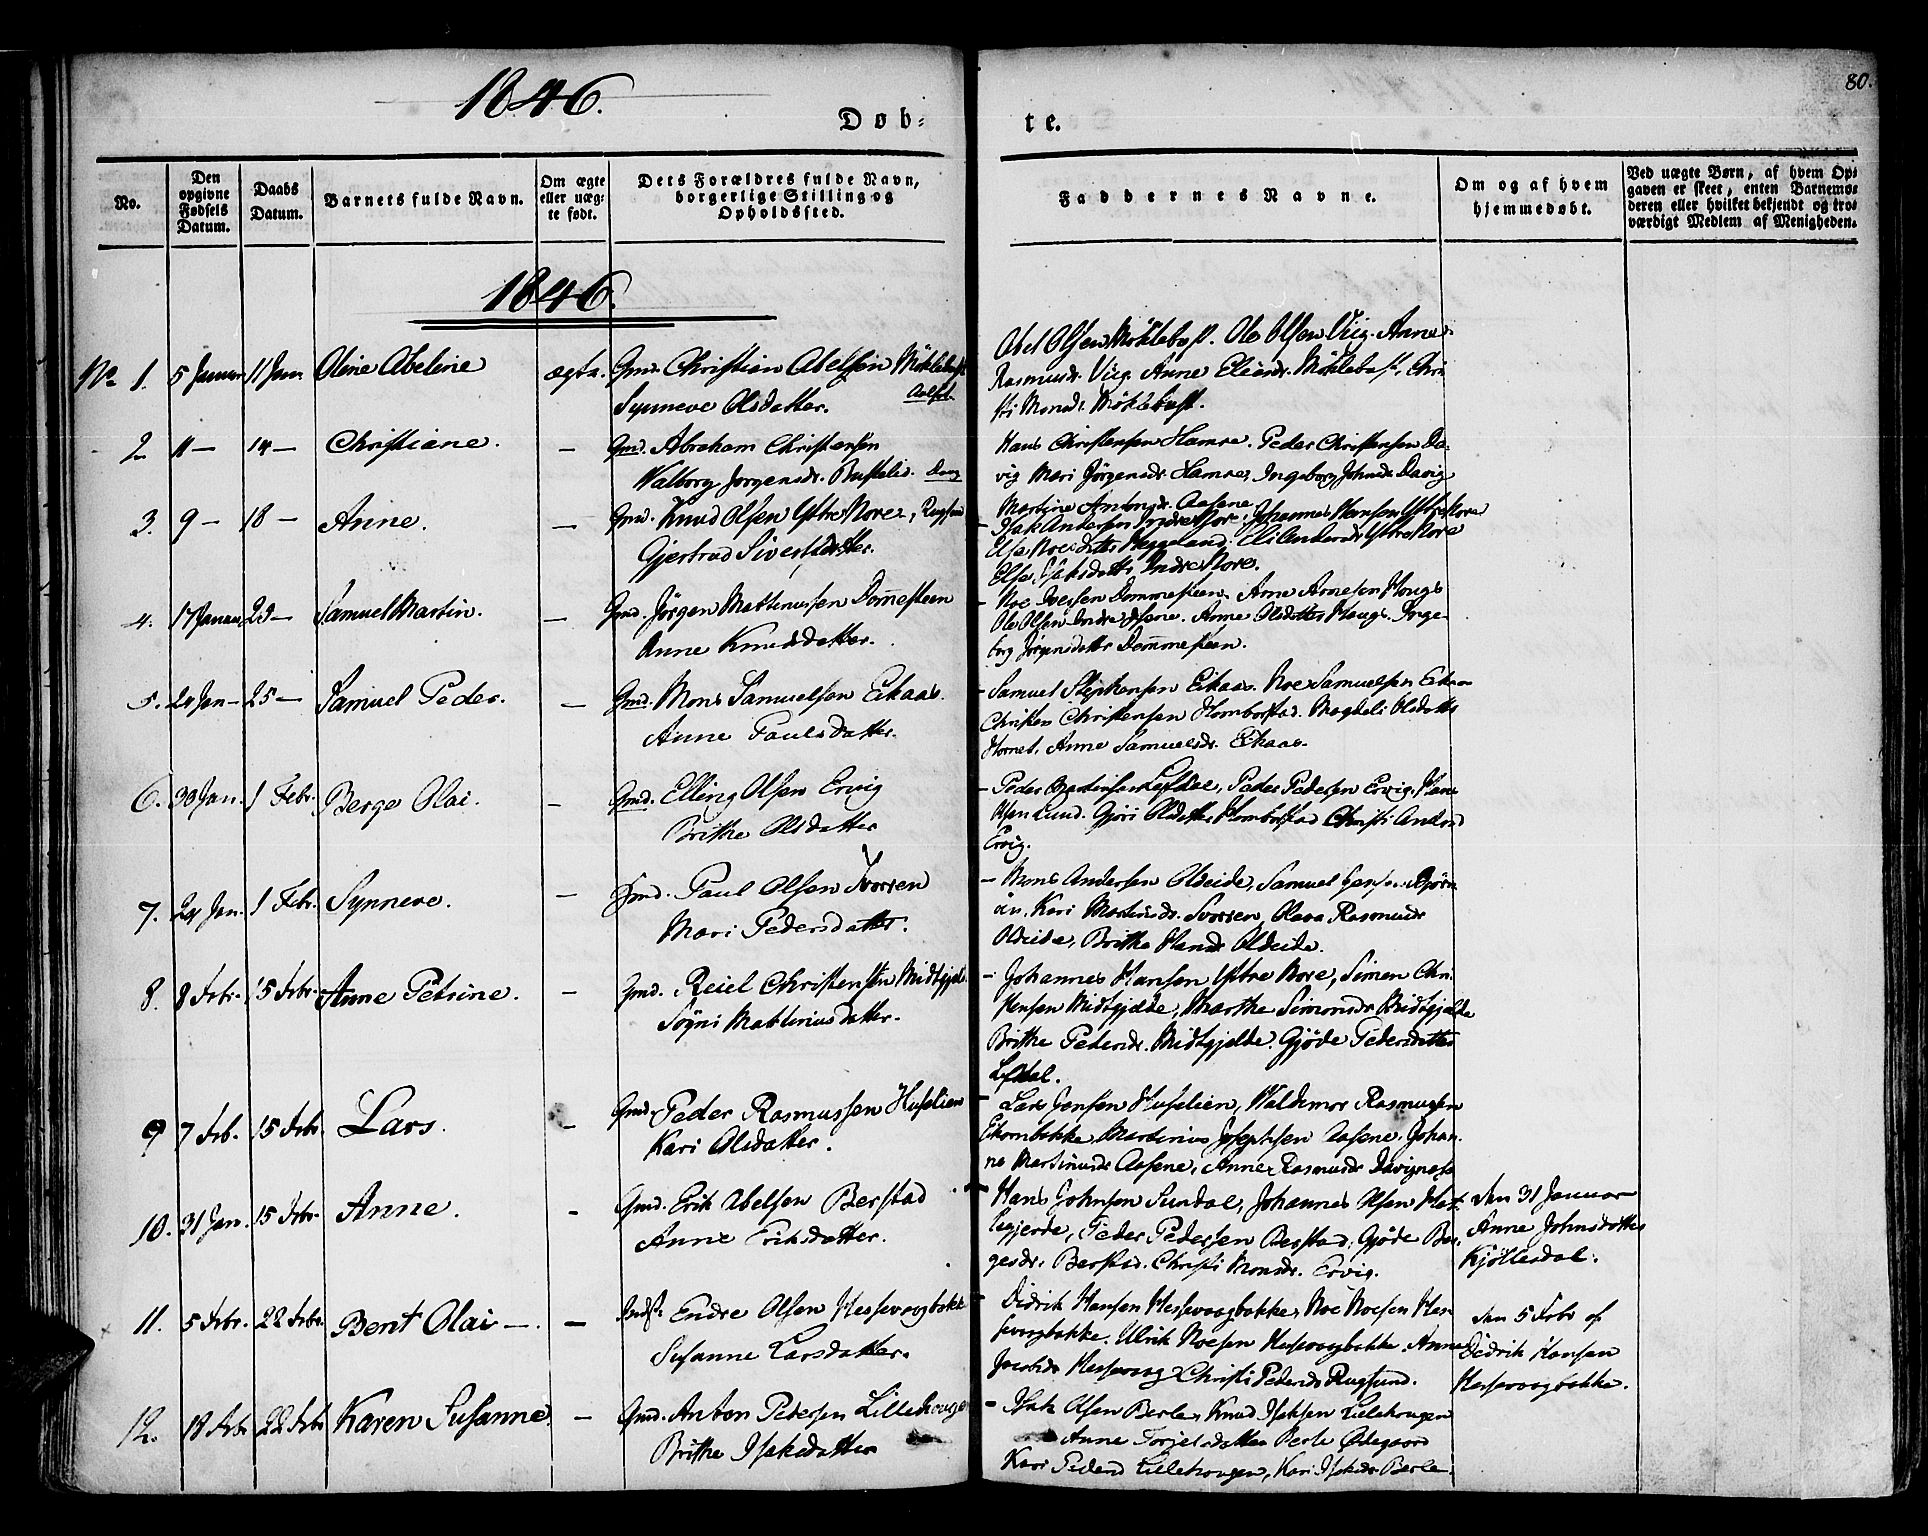 1846.
80.
Døb-
te.
No.
Den opgivne Fødsels Datum.
Daabs Datum.
Barnets fulde Navn.
Om ægte eller uægte født.
Dets Forældres fulde Navn, borgerlige Stilling og Opholdssted.
Faddernes Navne.
Om og af hvem hjemmedøbt.
Ved uægte Børn, af hvem Opgaven er skeet, enten Barnemoderen eller hvilket bekjendt og troværdigt Medlem af Menigheden.
1846.
No 1. 5 Januar 11 Jan. Oline Abeline ægte. Gmd. Christian Abelsen Möklebust
Synneve Olsdatter. Aalfot
Abel Olsen Möklebust. Ole Olsen Viig. Anne
Rasmusdr. Viig. Anne Eliasdr. Möklebust, Chri
sti Monsdr. Möklebust.
2 11 — 14 — Christiane. — Gmd. Abraham Christensen
Walborg Jørgensdr. Davig
Hans Christensen Hamre. Peder Christensen Da-
vig Mari Jörgensdr. Hamre, Ingeborg Johnsdr. Davig
Martine Aasene
3. 9 — 18 — Anne. — Gmd. Knud Olsen Ytre Nore, Rugsund
Gjertrud Sivertsdatter.
Isak Andersen Indre Nore. Johannes Hansen Ytre Nore
Else Noesdatter Heggeland. Eli Andersdr. Ytre Nore
Else Isaksdatter Indre Nore.
4. 17 Januar 25 — Samuel Martin. — Gmd. Jörgen Mathiussen Dom̅esteen
Anne Knudsdatter.
Noe Iversen Dommesteen. Arne Arnesen Houge
Ole Olsen Indre Anne Olsdatter Houge. Inge-
borg Jörgensdatter Dom̅mesteen.
5. 20 Jan — 25 — Samuel Peder. — Gmd. Mons Samuelsen Eikaas.
Anne Paulsdatter.
Samuel Stephensen Eikaas. Noe Samuelsen Eikaas
Christen Christensen Homborstad. Magdeli Olsdatter
Hornet. Anne Samuelsdr. Eikaas.
6. 30 Jan. 1 Febr. Berge Olai. — Gmd. Elling Olsen Ervig
Brithe Olsdatter
Peder Martinsen Lefdal, Peder Pedersen Ervig. Hans
Olsen Lund. Gjöri Olsdatter Homborstad Christi Andersd
Ervig.
7. 24 Jan. 1 Febr. Synneve. — Gmd. Paul Olsen Svorren
Mari Pedersdatter.
Mons Andersen Oldeide, Samuel
Kari Martinsdr. Svorren, Olava Rasmusdr
Oldeide, Brithe Hansdr Oldeide.
8. 8 Febr. 15 Febr. Anne Petrine. — Gmd. Reiel Christensen Midtgjelde
Sögni Mathiusdatter.
Johannes Hansen Ytre Nore, Simen Chri-
stensen Midtgjelde, Marthe Simonsdr Midtgjelde
Brithe Pedersdr. Midtgjelde. Gjöde Pedersdatter
Lefdal.
9 7 Feb. 15 Febr Lars. — Gmd. Peder Rasmussen Huselien
Kari Olsdatter.
Lars Jensen Huselien, Waldemar Rasmussen
Martinus Josephsen Aasene. Johan-
ne Martinusdr Aasene, Anne Rasmusdr
10. 31 Jan. 15 Febr. Anne. — Gmd. Erik Abelsen Berstad
Anne Eriksdatter.
Hans Johnsen Sundal, Johannes Olsen Hat-
legjerde, Peder Pedersen Berstad. Gjöde Bør-
gesdr. Berstad. Christi Monsdr. Ervig.
Den 31 Januar
Anne Johnsdatter
Kjöllesdal.
11. 5 Febr. 22 Febr. Bent Olai —. — Endre Olsen Hessevaagbakke
Susanne Larsdatter.
Didrik Hansen Hessevaagbakke, Noe Noesen Hes-
sevaagbakke. Ulrik Noesen Hessevaagbakke. Anne
Jacobsdr Hessevaag Christi Pedersdr Rugsund.
Den 5 Febr af
Didrik Hansen
Hessevaagbakke.
12. 18 Febr 22 Febr Karen Susanne — Gmd. Anton Petersen Lillehougen
Brithe Isaksdatter
Isak Olsen Berle, Knud Isaksen Lillehougen
Anne Torjelsdatter Berle Ødegaard
Kari Pedersd Lillehougen, Kari Isaksdr Berle.